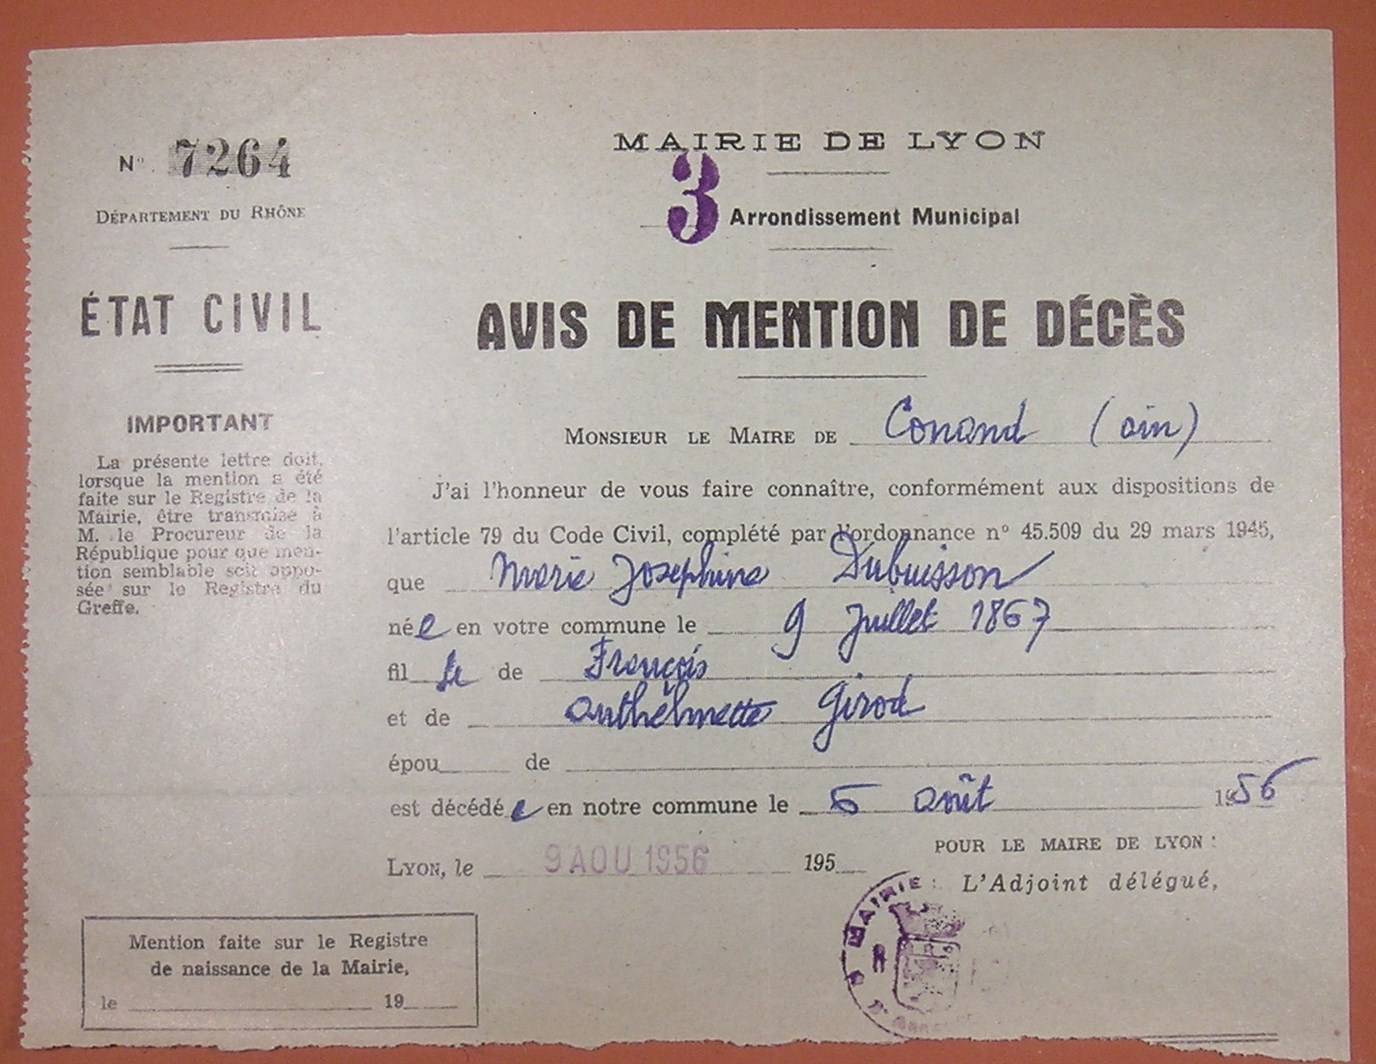 N° 7264
DÉPARTEMENT DU RHÔNE
ÉTAT CIVIL
IMPORTANT
La présente lettre doit,
lorsque la mention a été
faite sur le Registre de la
Mairie, être transmise à
M. le Procureur de la
République pour que men-
tion semblable soit appo-
sée sur le Registre du
Greffe.
MAIRIE DE LYON
3 Arrondissement Municipal
AVIS DE MENTION DE DÉCÈS
MONSIEUR LE MAIRE DE Conand (ain)
J'ai l'honneur de vous faire connaître, conformément aux dispositions de
l'article 79 du Code Civil, complété par l'ordonnance n° 45.509 du 29 mars 1945,
que Marie Josephine Dubuisson
née en votre commune le 9 Juillet 1867
fil le de François
et de Anthelmette Girod
épou de
est décédée en notre commune le 5 août 1956
LYON, le 9 AOU 1956 195
POUR LE MAIRE DE LYON :
L'Adjoint délégué,
MAIRIE
Mention faite sur le Registre
de naissance de la Mairie,
le 19